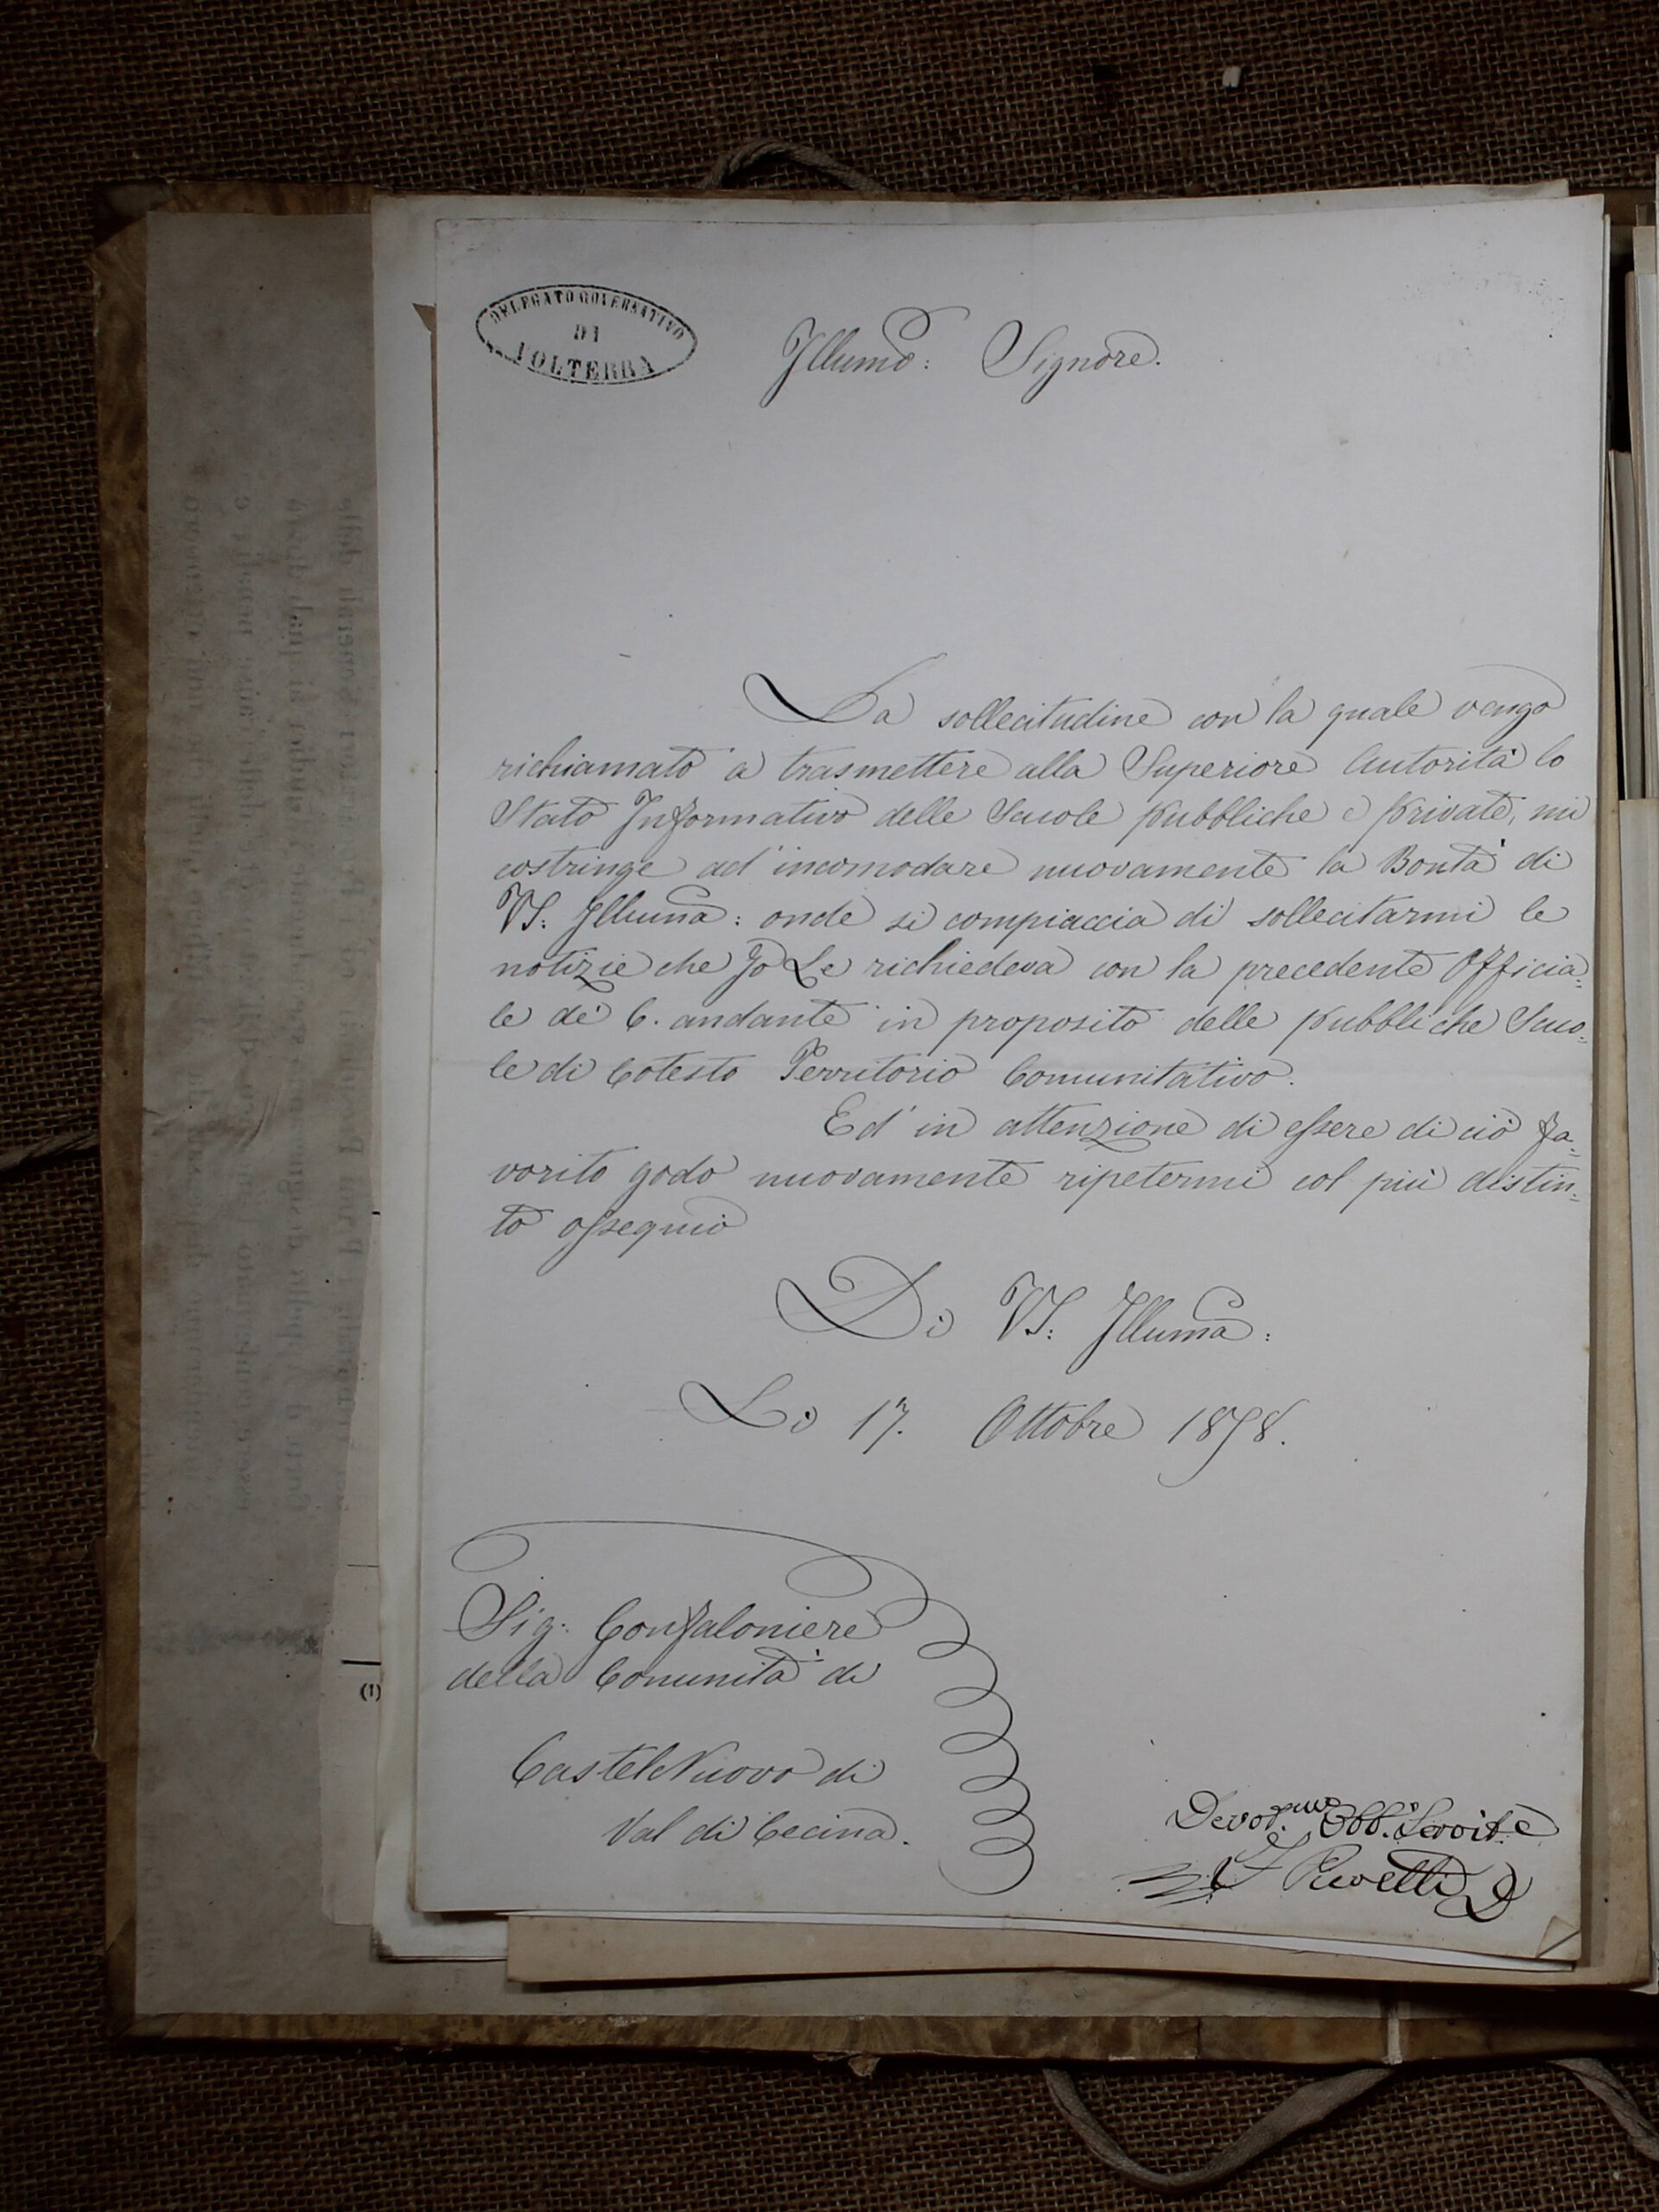 DELEGATO GOVERNATIVO
DI
VOLTERRA
Illumo: Signore.
La sollecitudine con la quale vengo
richiamato a trasmettere alla Superiore Autorità lo
Stato Informativo delle Scuole pubbliche e private, mi
costringe ad' incomodare nuovamente la Bontà di
VS: Illuma: onde si compiaccia di sollecitarmi le
notizie che Io Le richiedeva con la precedente Officia=
le de' 6. andante in proposito delle pubbliche Scuo=
le di Cotesto Territorio Comunitativo.
Ed' in attenzione di essere di ciò fa=
vorito godo nuovamente ripetermi col più distin=
to ossequio
Di VS: Illuma:
Li 17. Ottobre 1858.
Sig: Gonfaloniere
della Comunità di
CastelNuovo di
Val di Cecina.
Devot.mo Obb. Servit.e